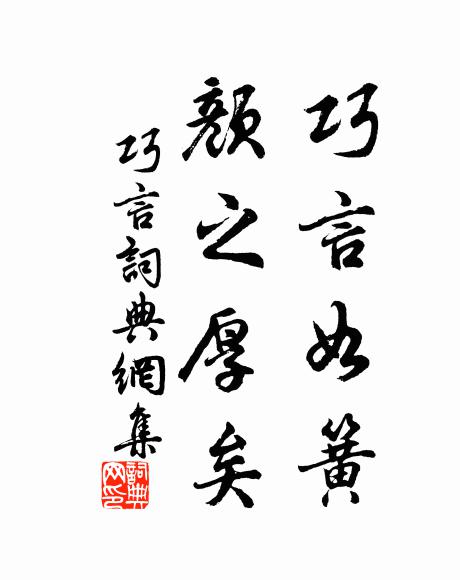 巧言如簧
顏之厚矣
巧言詞典網集
詞典
网印